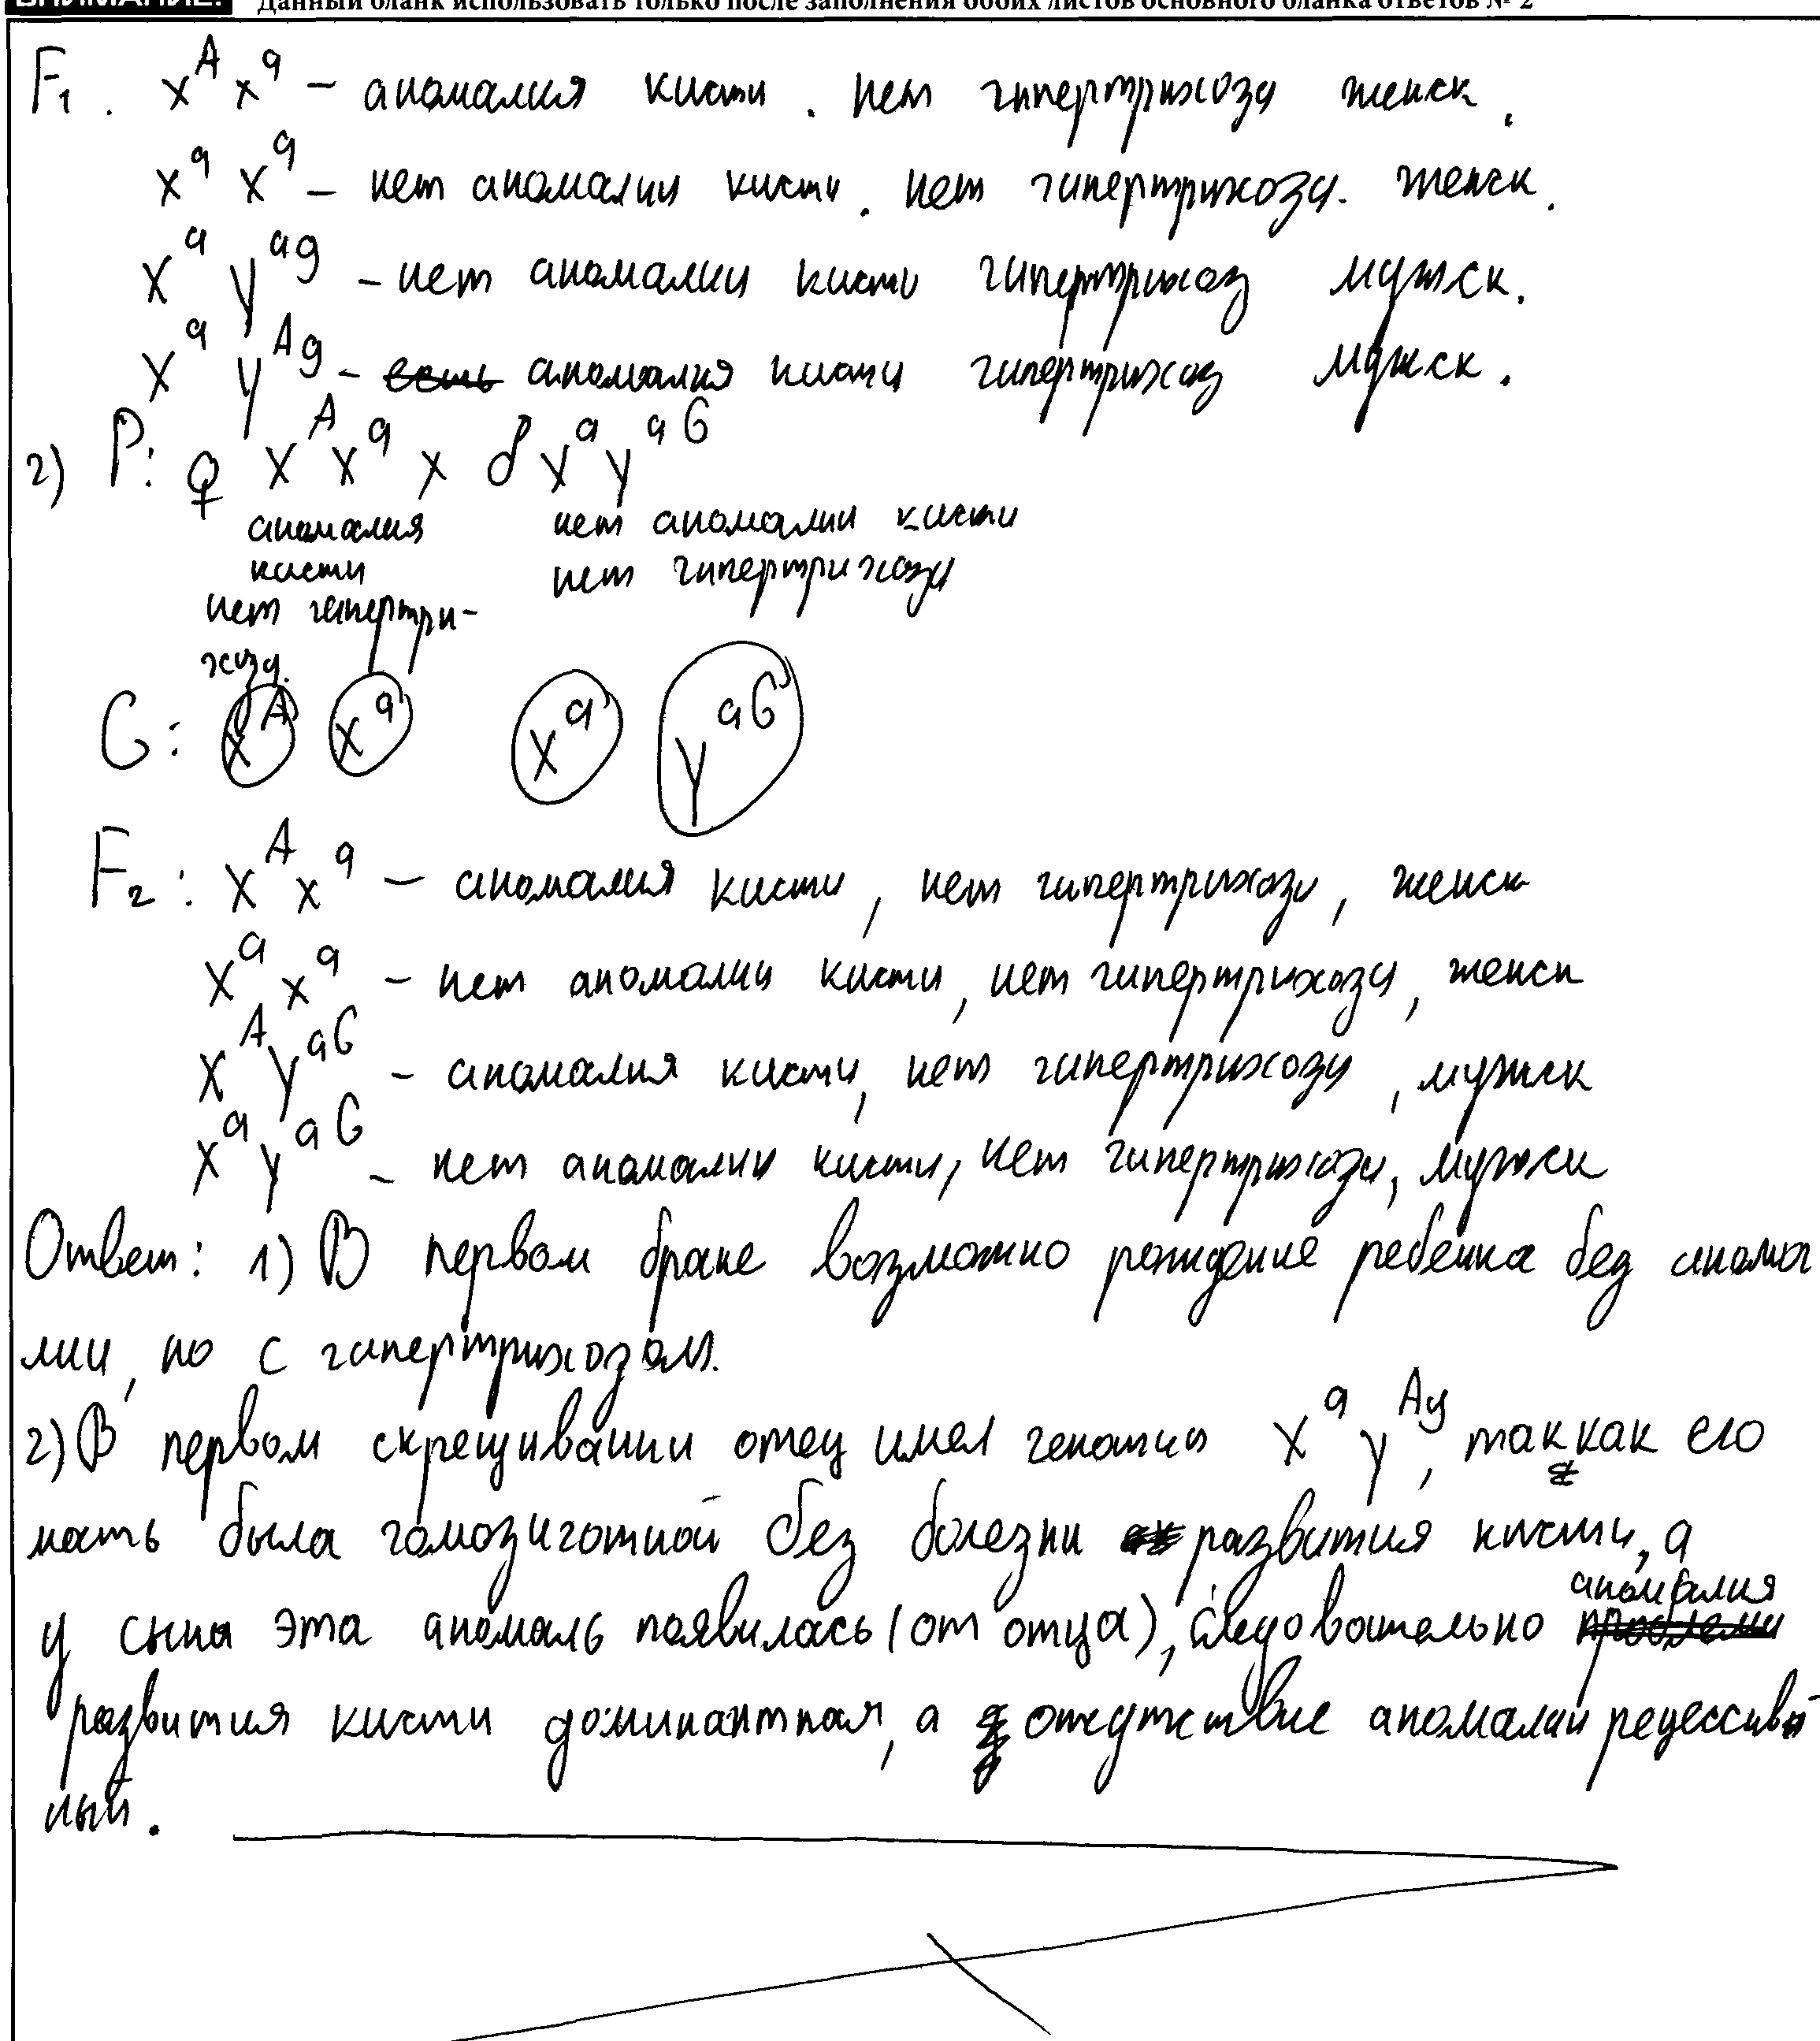 ВНИМАНИЕ! Данный бланк использовать только после заполнения обоих листов основного бланка ответов № 2
F₁. X^A X^a – аномалия кисти. нет гипертрихоза женск.
X^a X^a – нет аномалии кисти. нет гипертрихоза. женск.
X^a Y^ag – нет аномалии кисти гипертрихоз мужск.
X^a Y^Ag – аномалия кисти гипертрихоз мужск.
2) P: ♀ X^A X^a x ♂ X^a Y^aG
аномалия нет аномалии кисти
кисти нет гипертрихоза
нет гипертри-
хоза.
G: X^A X^a X^a Y^aG
F₂: X^A X^a – аномалия кисти, нет гипертрихоза, женск
X^a X^a – нет аномалии кисти, нет гипертрихоза, женск
X^A Y^aG – аномалия кисти, нет гипертрихоза, мужск
X^a Y^aG – нет аномалии кисти, нет гипертрихоза, мужск
Ответ: 1) В первом браке возможно рождение ребенка без анома
лии, но с гипертрихозом.
2) В первом скрещивании отец имел генотип X^a Y^Ag, так как его
мать была гомозиготной без болезни развития кисти, а
у сына эта аномаль появилась (от отца), следовательно аномалия
развития кисти доминантная, а отсутствие аномалии рецессив
ный.